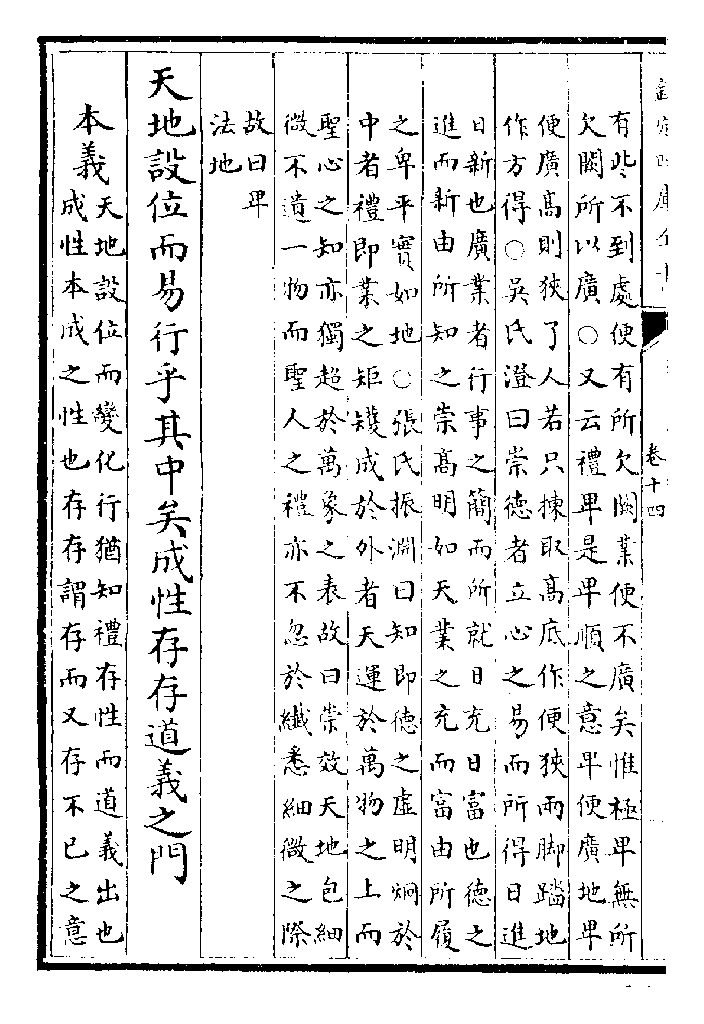 欽定四庫全書
卷十四
有些不到處便有所欠闕業便不廣矣惟極卑無所
欠闕所以廣○又云禮卑是卑順之意卑便廣地卑
便廣高則狹了人若只揀取高底作便狹兩脚踏地
作方得○吳氏澄曰崇德者立心之易而所得日進
日新也廣業者行事之簡而所就日充日富也德之
進而新由所知之崇髙明如天業之充而富由所履
之卑平實如地○張氏振淵曰知即德之虛明炯於
中者禮即業之矩矱成於外者天運於萬物之上而
聖心之知亦獨超於萬象之表故曰崇效天地包細
微不遺一物而聖人之禮亦不忽於纖悉細微之際
故曰卑
法地
天地設位而易行乎其中矣成性存存道義之門
本義天地設位而變化行猶知禮存性而道義出也
成性本成之性也存存謂存而又存不已之意